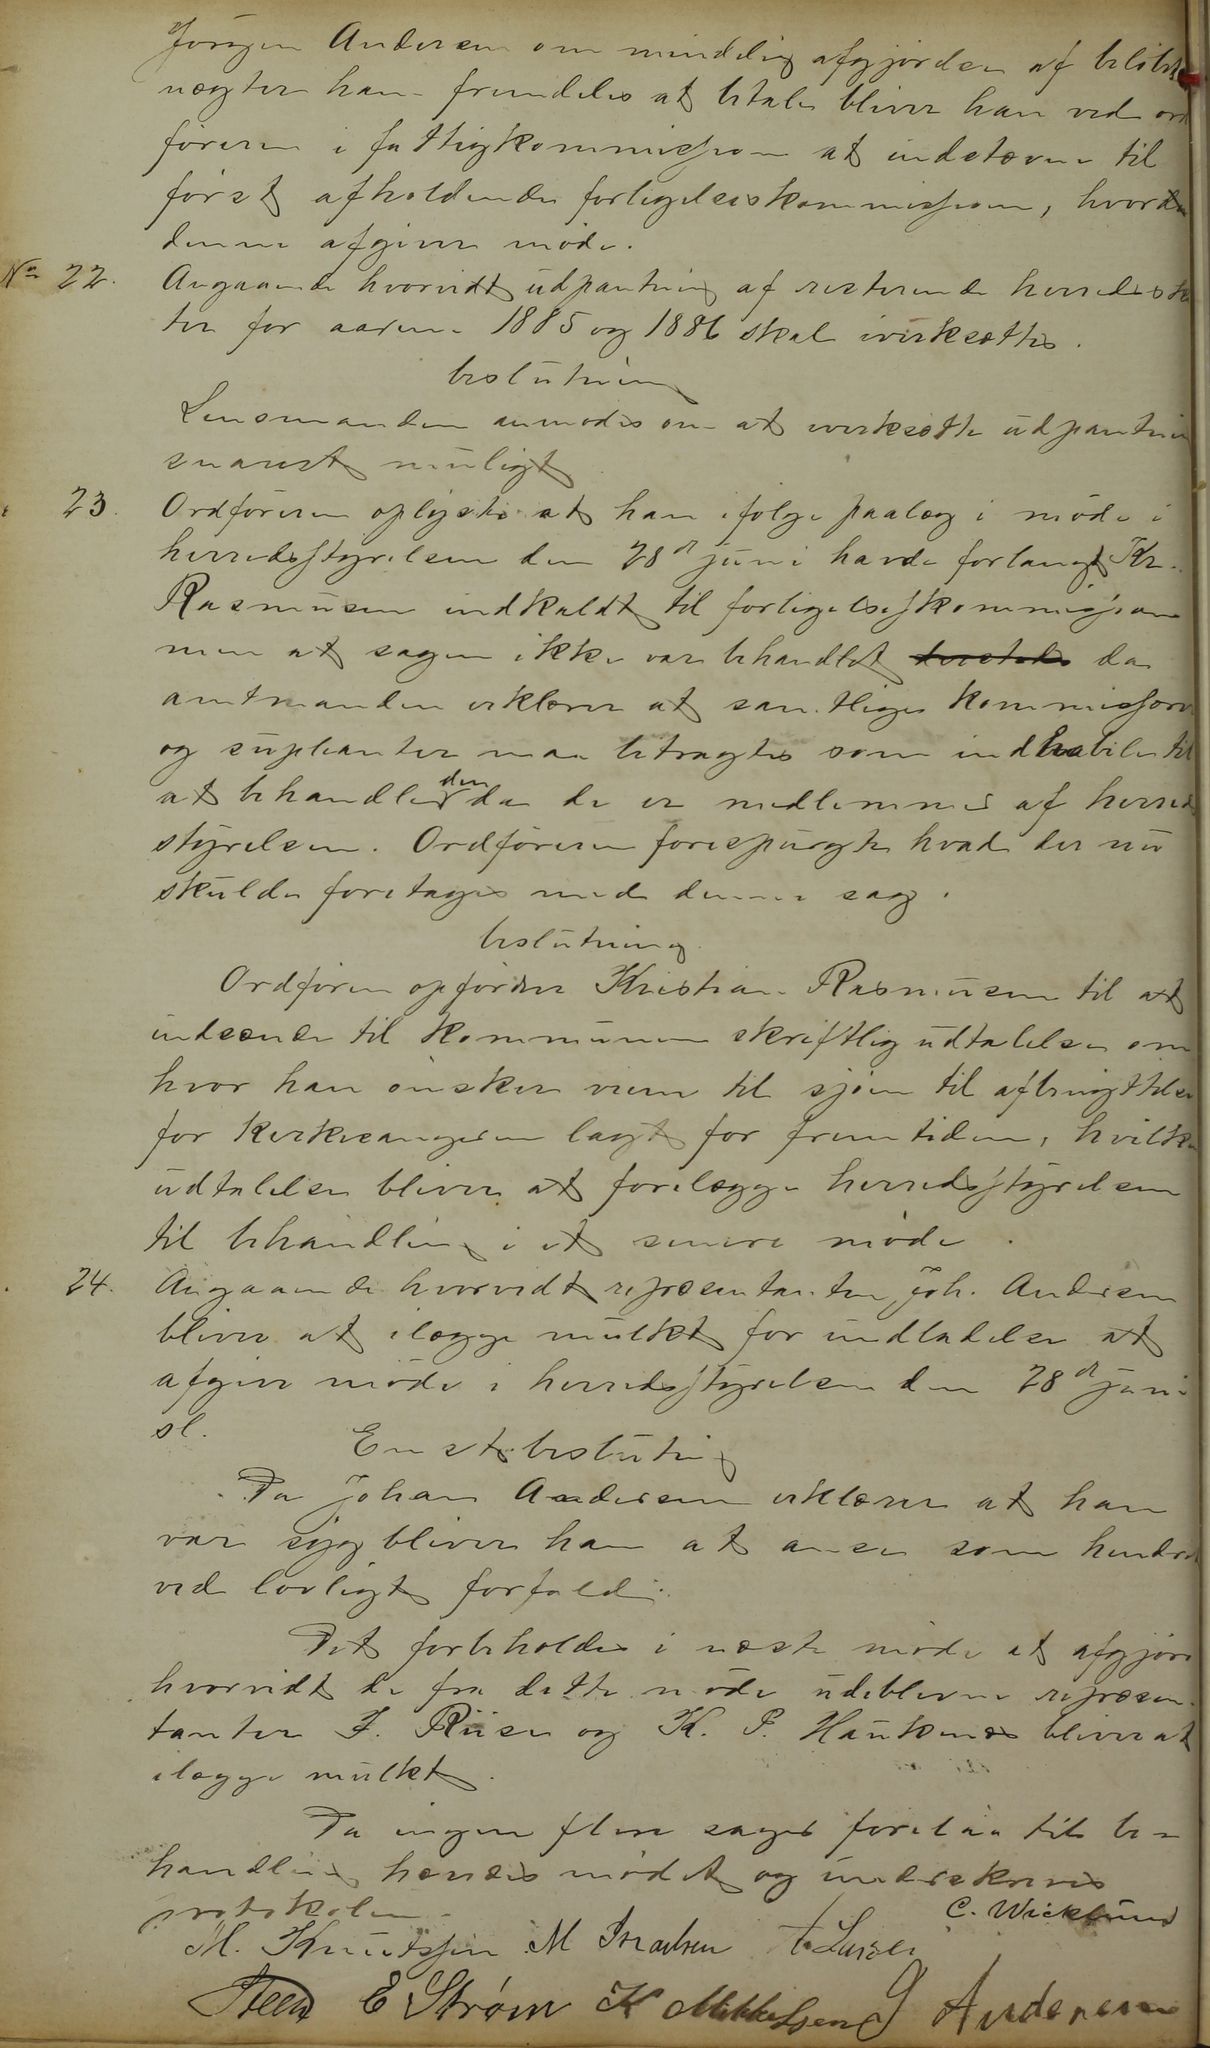 Jörgen Andersen om mindelig afgjørelse af beløbet
nægter han fremdeles at betale bliver han ved ord
föreren i fattigkommissionen at indstævne til
först afholdende forligelseskommission, hvorda
denne afgiver möde.
No 22. Angaaende hvorvidt udpantning af resterende herredsska
ter for aarene 1885 og 1886 skal iverksættes.
beslutning
Lensmanden anmodes om at iverksætte udpantning
snarest muligt
23. Ordföreren oplyste at han ifølge paalæg i möde i
herredsstyrelsen den 28de juni havde forlangt Kr.
Rasmusen indkaldt til forligelseskommissionen
men at sagen ikke var behandlet da
amtmanden erklærer at samtlige kommissærer
og suplianter maa betragtes som indhabile til
at behandle den da de er medlemmer af herreds
styrelsen. Ordföreren forespurgte hvad der nu
skulde foretages med denne sag.
beslutning
Ordföreren opfordrer Kristian Rasmusen til at
indsende til kommunen skriftlig udtalelse om
hvor han önsker veien til sjöen til afbenyttelse
for Kirkeangeren lagt for fremtiden, hvilken
udtalelse bliver at forelægge herredsstyrelsen
til behandling i et senere möde.
24. Angaaende hvorvidt repræsentanten Joh. Andersen
bliver at ilægge mulkt for undladelse at
afgive möde i herredsstyrelsen den 28de juni
sl.
Enst. beslutning
Da Johan Andersen erklærer at han
var syg bliver han at anse som hindret
ved lovligt forfald.
Det forbeholdes i næste möde at afgjøre
hvorvidt de fra dette möde udeblevne repræsen
tanter J. Riise og K. P. Haukenes bliver at
ilægge mulkt.
Da ingen flere sager forelaa til be
handling hævdes mödet og underskrives
protokolen.
C. Wicklund
M. Knutssen M Israelsen
Steen E Strøm K Mikkelsen G Andersen